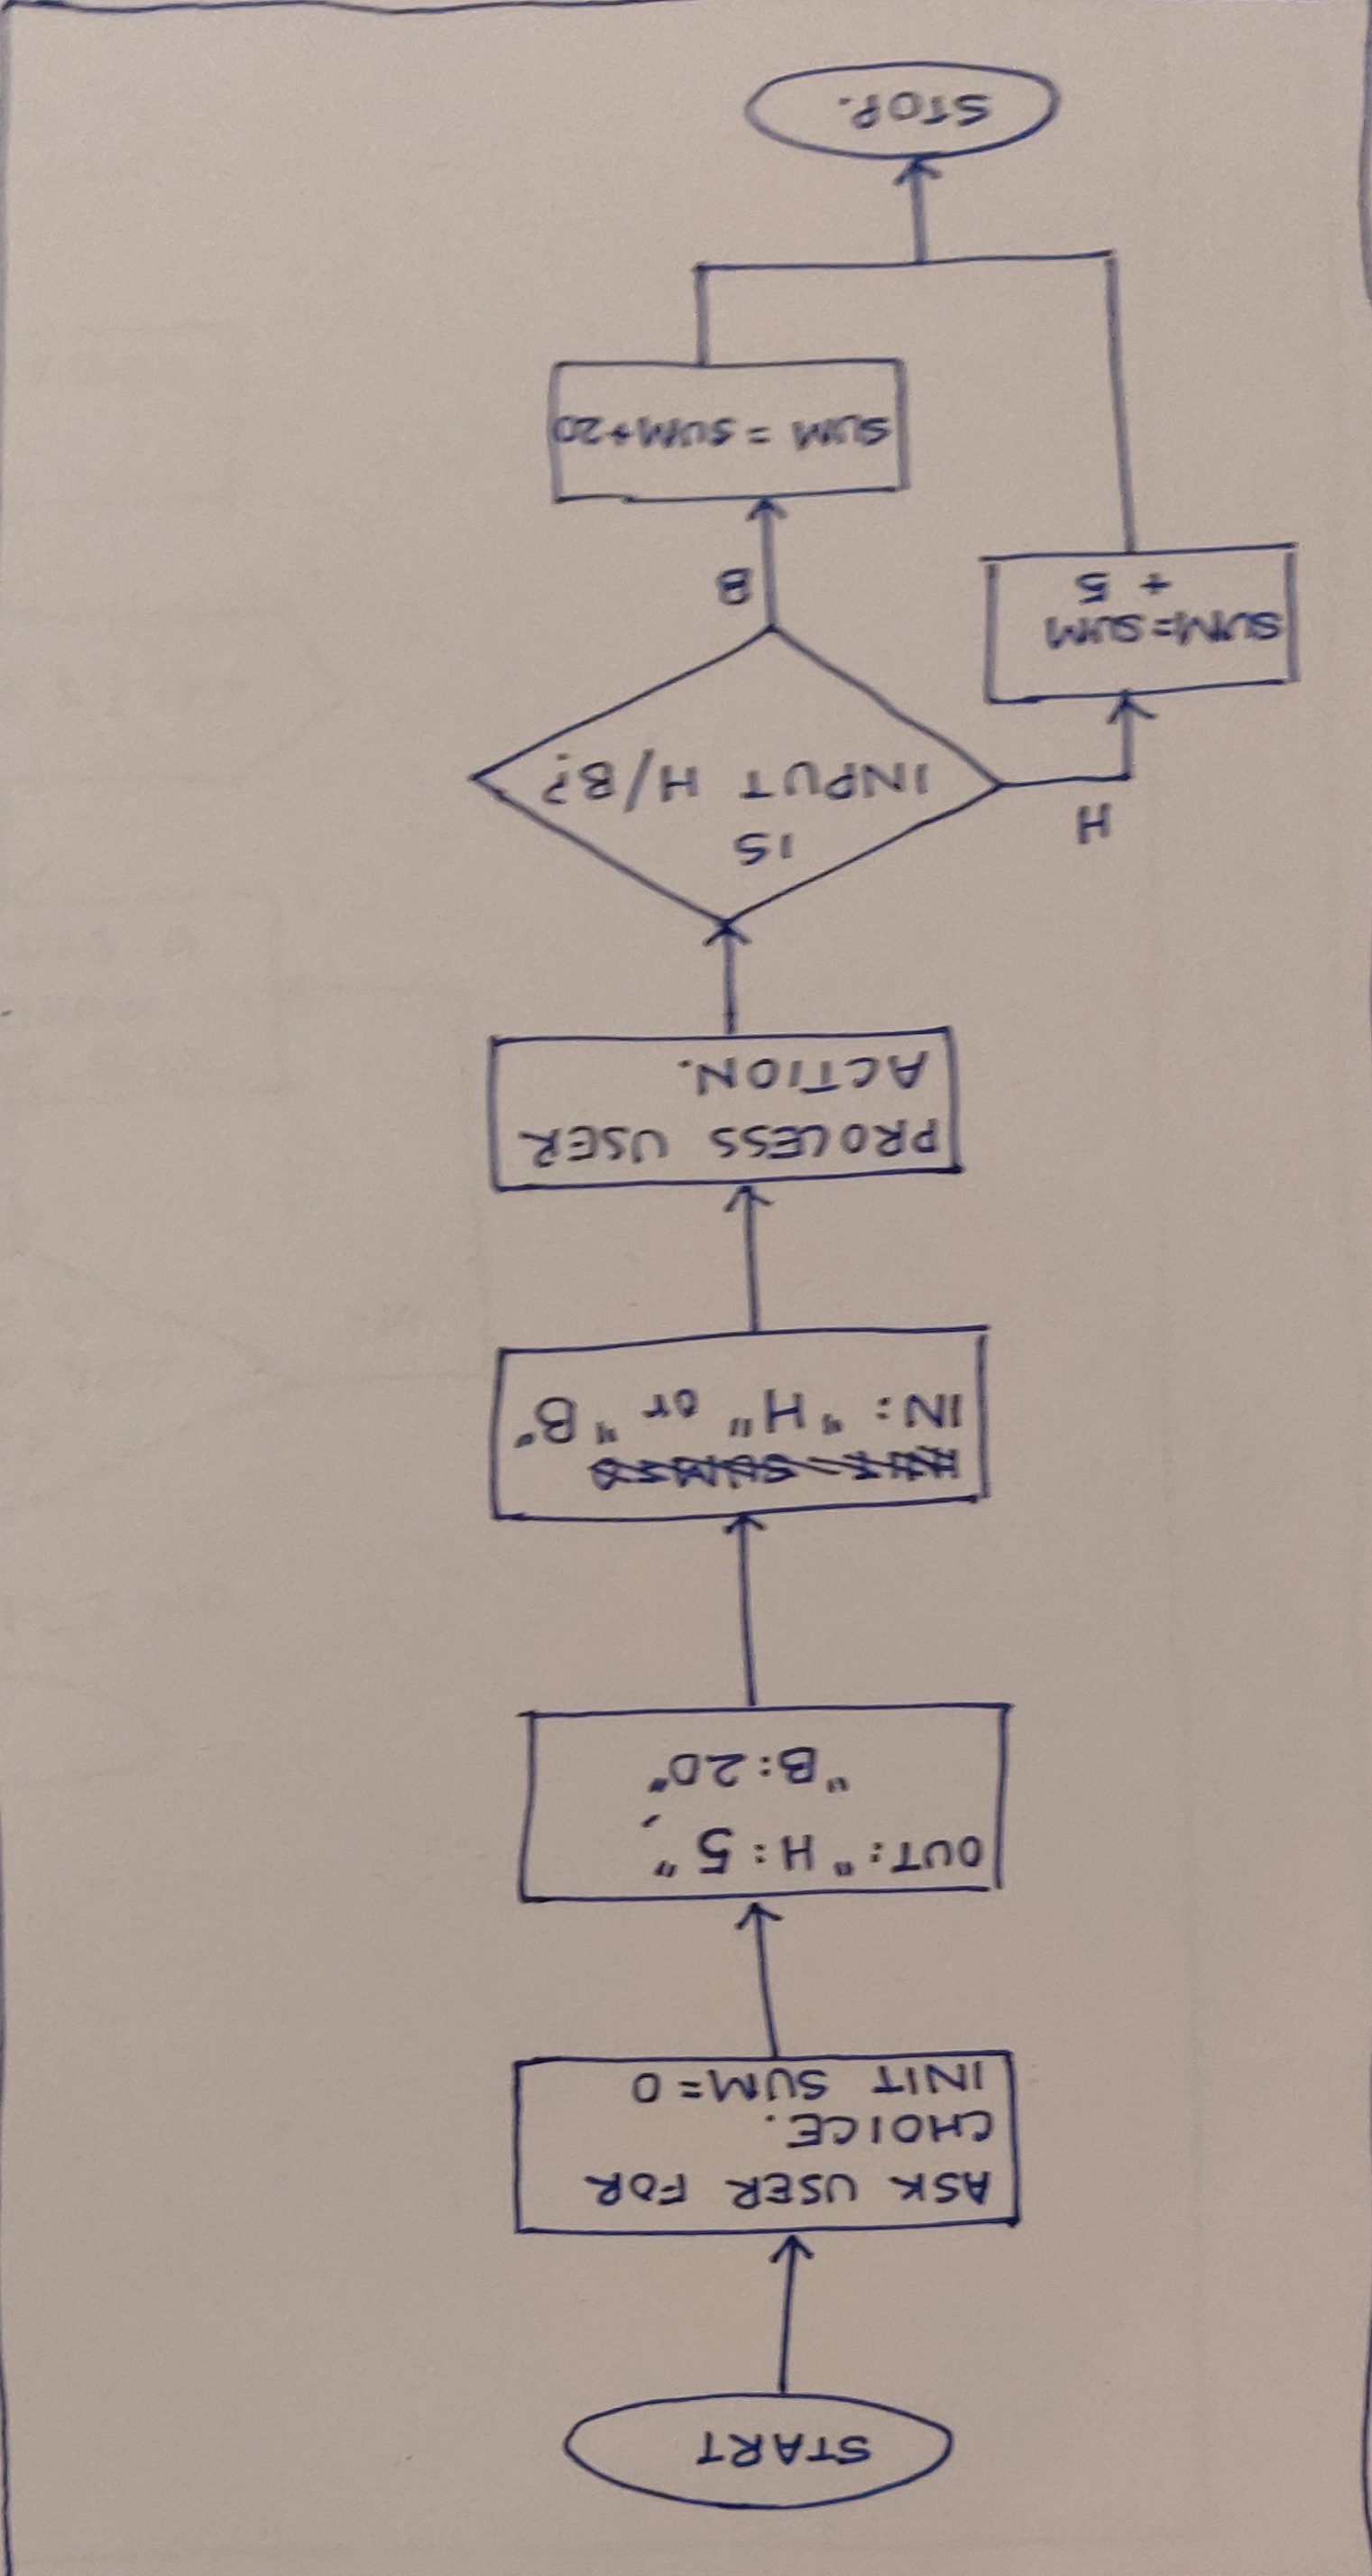 START
ASK USER FOR
CHOICE.
INIT SUM=0
OUT: "H:5",
"B:20"
IN: "H" or "B"
PROCESS USER
ACTION.
IS
INPUT H/B?
H
SUM=SUM
+ 5
B
SUM = SUM+20
STOP.